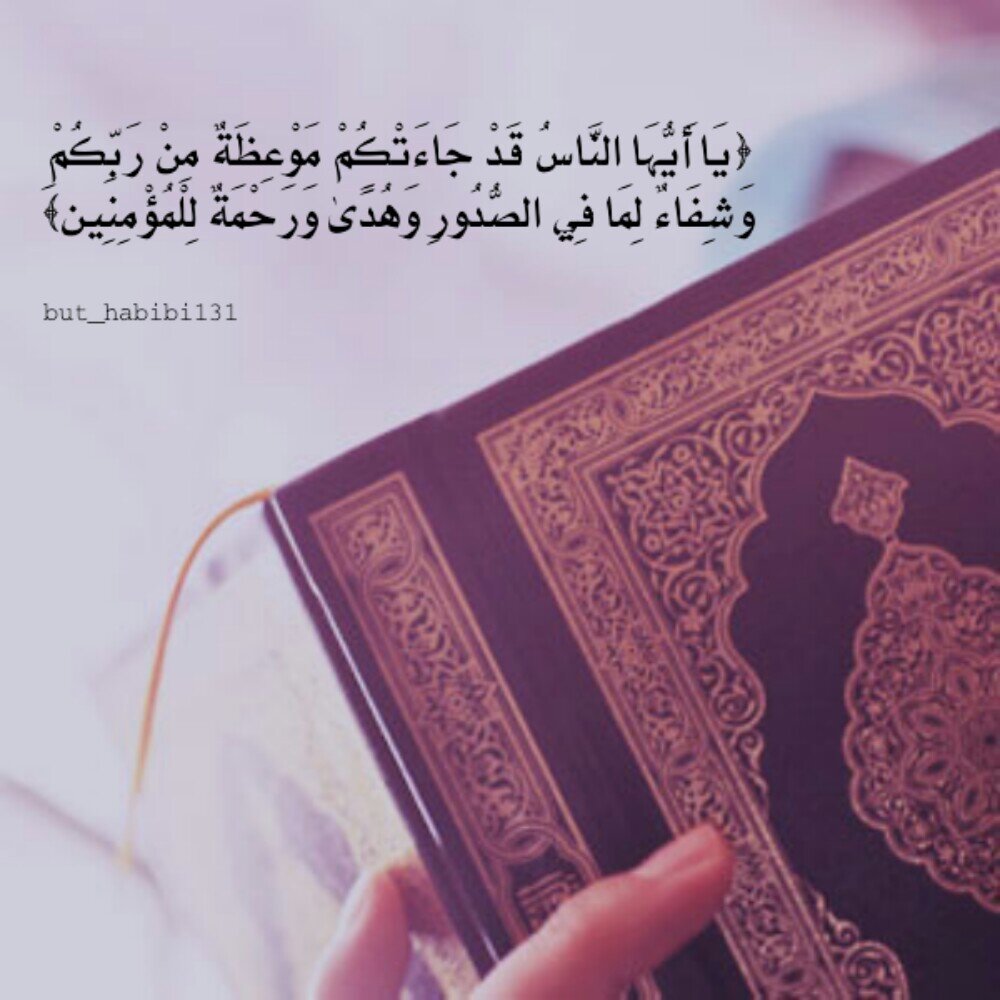 ﴿يَا أَيُّهَا النَّاسُ قَدْ جَاءَتْكُمْ مَوْعِظَةٌ مِنْ رَبِّكُمْ
وَشِفَاءٌ لِمَا فِي الصُّدُورِ وَهُدًى وَرَحْمَةٌ لِلْمُؤْمِنِين﴾
but_habibi131